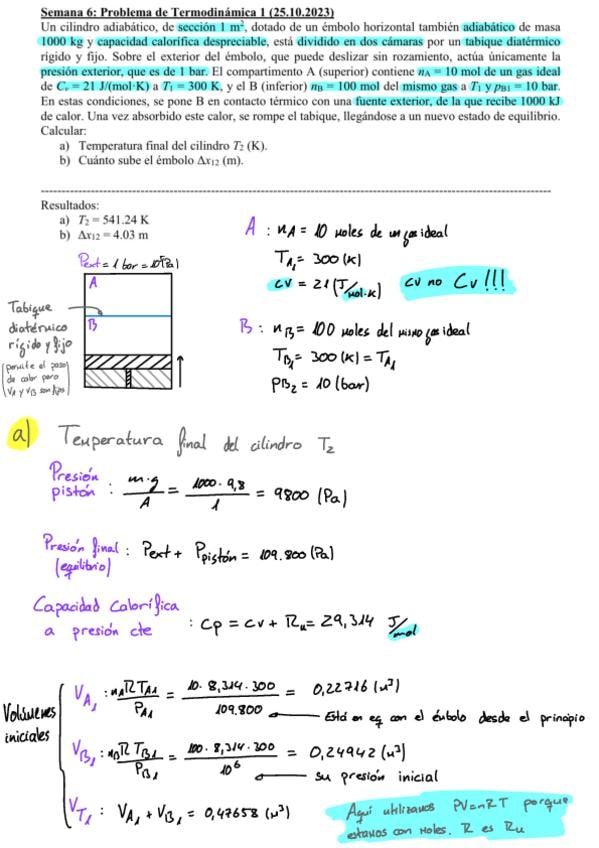 Semana 6: Problema de Termodinámica 1 (25.10.2023)
Un cilindro adiabático, de sección 1 m², dotado de un émbolo horizontal también adiabático de masa
1000 kg y capacidad calorífica despreciable, está dividido en dos cámaras por un tabique diatérmico
rígido y fijo. Sobre el exterior del émbolo, que puede deslizar sin rozamiento, actúa únicamente la
presión exterior, que es de 1 bar. El compartimento A (superior) contiene nA = 10 mol de un gas ideal
de Cv = 21 J/(mol·K) a T1 = 300 K, y el B (inferior) nB = 100 mol del mismo gas a T1 y pB1 = 10 bar.
En estas condiciones, se pone B en contacto térmico con una fuente exterior, de la que recibe 1000 kJ
de calor. Una vez absorbido este calor, se rompe el tabique, llegándose a un nuevo estado de equilibrio.
Calcular:
a) Temperatura final del cilindro T2 (K).
b) Cuánto sube el émbolo Δx12 (m).
Resultados:
a) T2 = 541.24 K
b) Δx12 = 4.03 m
A : nA = 10 moles de un gas ideal
TA1 = 300 (K)
cv = 21 (J/mol·K)
cv no Cv!!!
B : nB = 100 moles del mismo gas ideal
TB1 = 300 (K) = TA1
PB2 = 10 (bar)
Pext = 1 bar = 10⁵(Pa)
A
B
Tabique
diatérmico
rígido y fijo
(permite el paso
de calor pero
VA y VB son fijos)
a) Temperatura final del cilindro T2
Presión
pistón : m·g/A = 1000·9,8/1 = 9800 (Pa)
Presión final : Pext + Ppistón = 109.800 (Pa)
(equilibrio)
Capacidad Calorífica
a presión cte : cp = cv + Ru = 29,314 J/mol
Volúmenes
iniciales
VA1 : nA R TA1/PA1 = 10·8,314·300/109.800 = 0,22716 (m³)
Está en eq con el émbolo desde el principio
VB1 : nB R TB1/PB1 = 100·8,314·300/10⁶ = 0,24942 (m³)
su presión inicial
VT1 : VA1 + VB1 = 0,47658 (m³)
Aquí utilizamos PV=nRT porque
estamos con moles. R es Ru